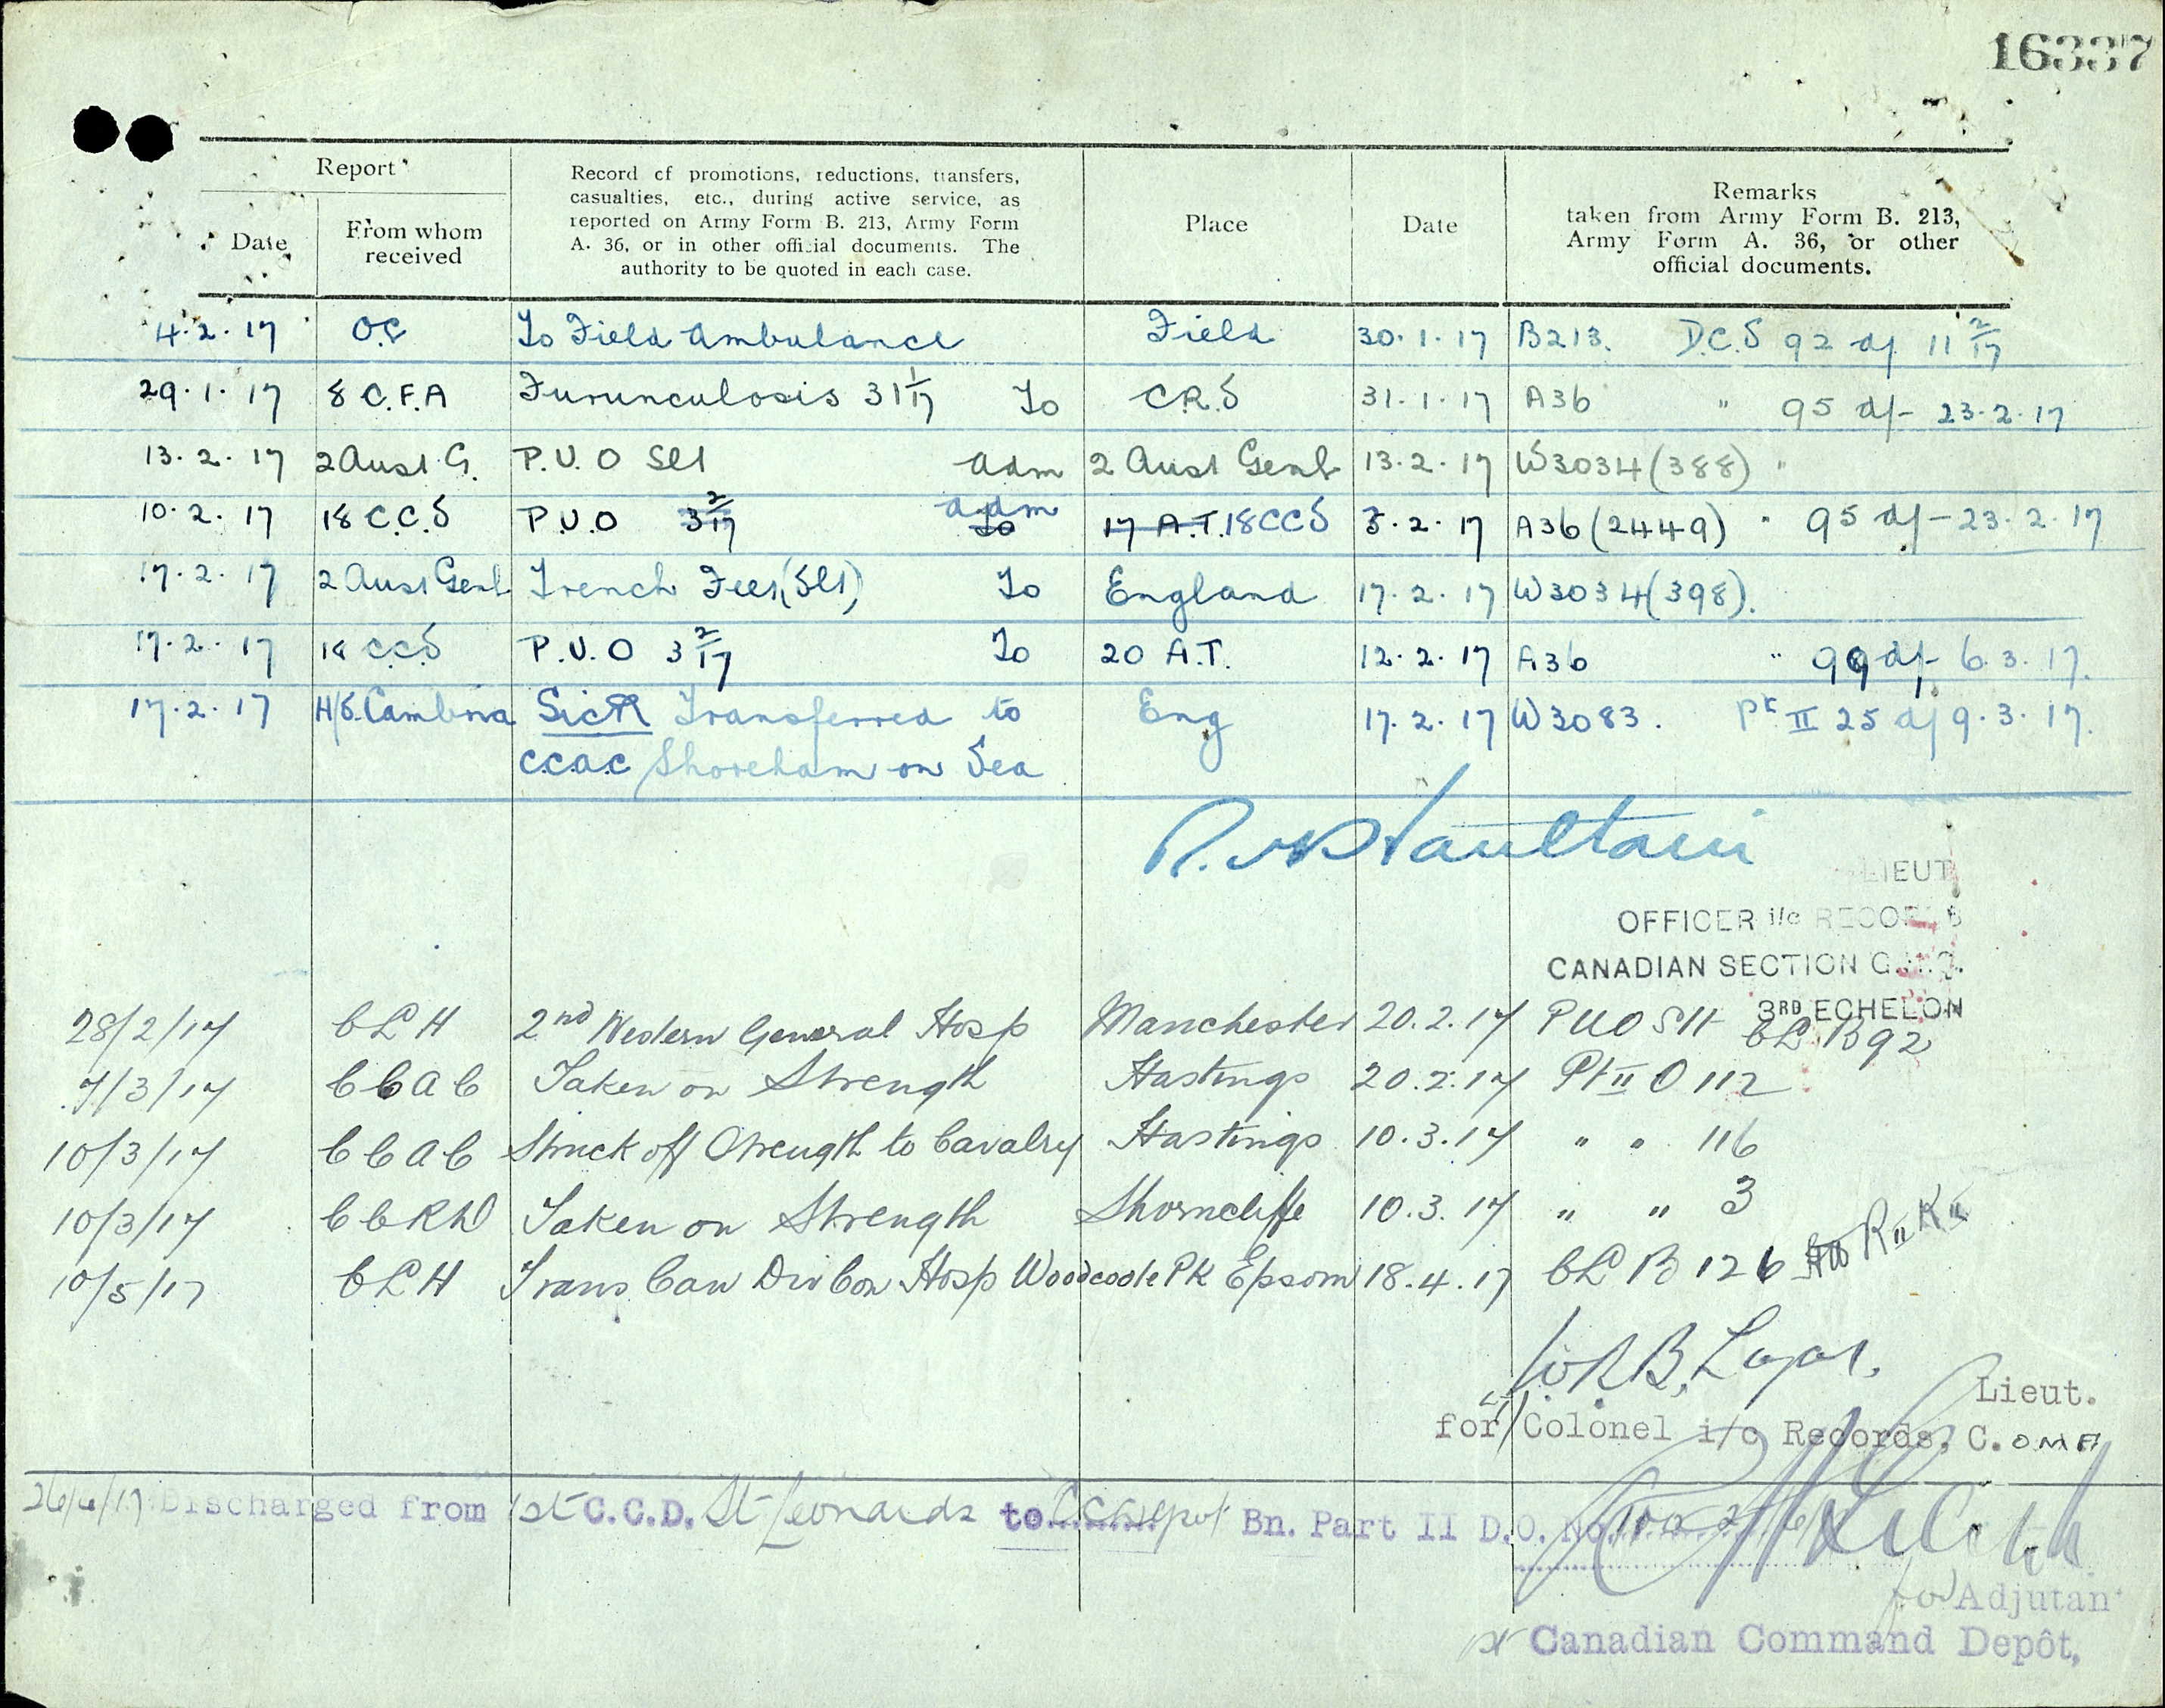 16337
Report
Date
From whom received
Record of promotions, reductions, transfers,
casualties, etc., during active service, as
reported on Army Form B. 213, Army Form
A. 36, or in other official documents. The
authority to be quoted in each case.
Place
Date
Remarks
taken from Army Form B. 213,
Army Form A. 36, or other
official documents.
4.2.17 O.C To Field Ambulance Field 30.1.17 B213. D.C.S 92 d/ 11 2/17
29.1.17 8 C.F.A Furunculosis 31 1/17 To C.R.S 31.1.17 A36 " 95 d/- 23.2.17
13.2.17 2 Aust G. P.U.O Slt adm 2 Aust Genl 13.2.17 W3034(388) "
10.2.17 18 C.C.S P.U.O 3 2/17 adm To 17 A.T. 18 CCS 3.2.17 A36 (2449) " 95 d/- 23.2.17
17.2.17 2 Aust Genl Trench Feet (Slt) To England 17.2.17 W3034(398).
17.2.17 18 C.C.S P.U.O 3 2/17 To 20 A.T. 12.2.17 A36 " 99 d/- 6.3.17.
17.2.17 H/S. Cambria Sick Transferred to Eng 17.2.17 W3083. Pt II 25 d/ 9.3.17.
C.C.A.C Shoreham on Sea
LIEUT
OFFICER i/c RECORDS
CANADIAN SECTION G.H.Q.
3RD ECHELON
28/2/17 CLH 2nd Western General Hosp Manchester 20.2.17 PUO Slt CL B92
7/3/17 CCAC Taken on Strength Hastings 20.2.17 Pt II O 112
10/3/17 CCAC Struck off Strength to Cavalry Hastings 10.3.17 " " 116
10/3/17 CCRD Taken on Strength Shorncliffe 10.3.17 " " 3
10/5/17 CLH Trans Can Div Con Hosp Woodcote Pk Epsom 18.4.17 CL B 126
Lieut.
for Colonel i/c Records. C. OMF
26/6/17 Discharged from 1st C.C.D. St Leonards to Bn. Part II D.O. No.
for Adjutant
1st Canadian Command Depôt,